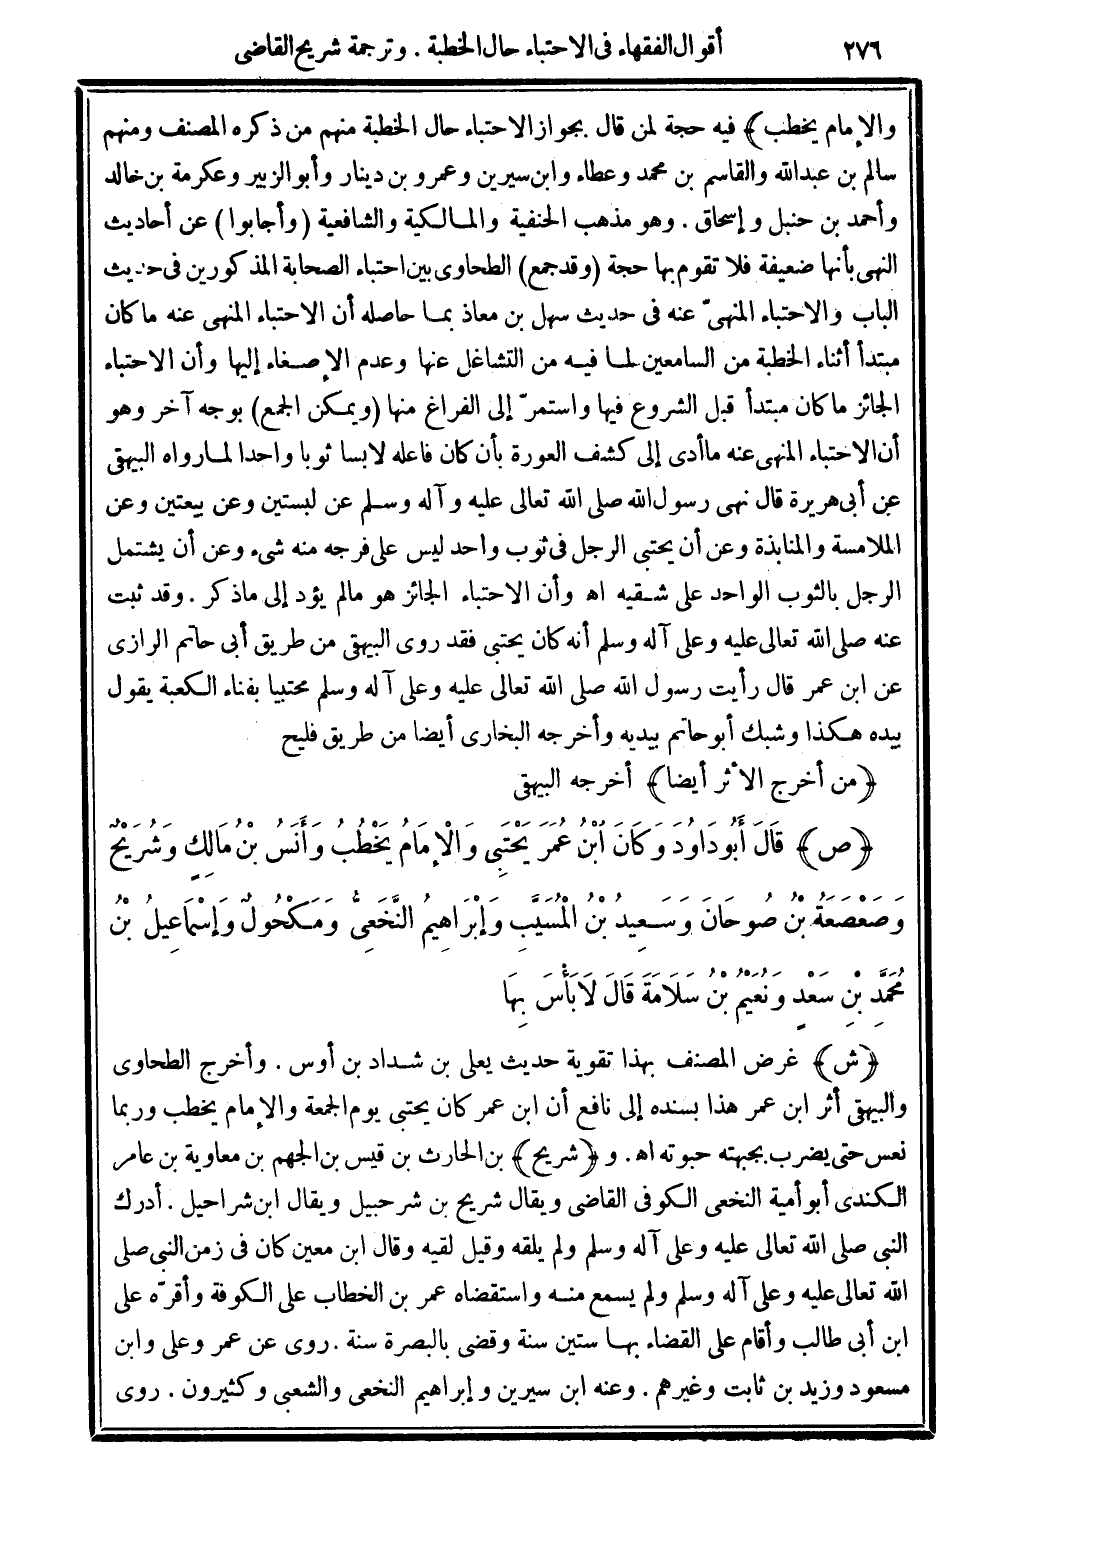 ٢٧٦ أقوال الفقهاء فى الاحتباء حال الخطبة . وترجمة شريح القاضى
والإمام يخطب﴾ فيه حجة لمن قال بجواز الاحتباء حال الخطبة منهم من ذكره المصنف ومنهم
سالم بن عبدالله والقاسم بن محمد وعطاء وابن سيرين وعمرو بن دينار وأبو الزبير وعكرمة بن خالد
وأحمد بن حنبل وإسحاق . وهو مذهب الحنفية والمالكية والشافعية (وأجابوا) عن أحاديث
النهى بأنها ضعيفة فلا تقوم بها حجة (وقد جمع) الطحاوى بين احتباء الصحابة المذكورين فى حديث
الباب والاحتباء المنهىّ عنه فى حديث سهل بن معاذ بما حاصله أن الاحتباء المنهى عنه ما كان
مبتدأ أثناء الخطبة من السامعين لما فيه من التشاغل عنها وعدم الإصغاء إليها وأن الاحتباء
الجائز ما كان مبتدأ قبل الشروع فيها واستمرّ إلى الفراغ منها (ويمكن الجمع) بوجه آخر وهو
أن الاحتباء المنهى عنه ما أدى إلى كشف العورة بأن كان فاعله لابسا ثوبا واحدا لما رواه البيهقى
عن أبى هريرة قال نهى رسول الله صلى الله تعالى عليه وآله وسلم عن لبستين وعن بيعتين وعن
الملامسة والمنابذة وعن أن يحتبى الرجل فى ثوب واحد ليس على فرجه منه شىء وعن أن يشتمل
الرجل بالثوب الواحد على شقيه اه وأن الاحتباء الجائز هو مالم يؤد إلى ماذكر . وقد ثبت
عنه صلى الله تعالى عليه وعلى آله وسلم أنه كان يحتبى فقد روى البيهقى من طريق أبى حاتم الرازى
عن ابن عمر قال رأيت رسول الله صلى الله تعالى عليه وعلى آله وسلم محتبيا بفناء الكعبة يقول
بيده هكذا وشبك أبو حاتم بيديه وأخرجه البخارى أيضا من طريق فليح
﴿من أخرج الأثر أيضا﴾ أخرجه البيهقى
﴿ص﴾ قَالَ أَبُو دَاوُدَ وَكَانَ ابْنُ عُمَرَ يَحْتَبِى وَالْإِمَامُ يَخْطُبُ وَأَنَسُ بْنُ مَالِكٍ وَشُرَيْحٌ
وَصَعْصَعَةُ بْنُ صُوحَانَ وَسَعِيدُ بْنُ الْمُسَيَّبِ وَإِبْرَاهِيمُ النَّخَعِىُّ وَمَكْحُولٌ وَإِسْمَاعِيلُ بْنُ
مُحَمَّدِ بْنِ سَعْدٍ وَنُعَيْمُ بْنُ سَلَامَةَ قَالَ لَا بَأْسَ بِهَا
﴿ش﴾ غرض المصنف بهذا تقوية حديث يعلى بن شداد بن أوس . وأخرج الطحاوى
والبيهقى أثر ابن عمر هذا بسنده إلى نافع أن ابن عمر كان يحتبى يوم الجمعة والإمام يخطب وربما
نعس حتى يضرب بجبهته حبوته اه. و ﴿شريح﴾ بن الحارث بن قيس بن الجهم بن معاوية بن عامر
الكندى أبو أمية النخعى الكوفى القاضى ويقال شريح بن شرحبيل ويقال ابن شراحيل . أدرك
النبى صلى الله تعالى عليه وعلى آله وسلم ولم يلقه وقيل لقيه وقال ابن معين كان فى زمن النبى صلى
الله تعالى عليه وعلى آله وسلم ولم يسمع منه واستقضاه عمر بن الخطاب على الكوفة وأقرّه على
ابن أبى طالب وأقام على القضاء بها ستين سنة وقضى بالبصرة سنة . روى عن عمر وعلى وابن
مسعود وزيد بن ثابت وغيرهم . وعنه ابن سيرين وإبراهيم النخعى والشعبى وكثيرون . روى